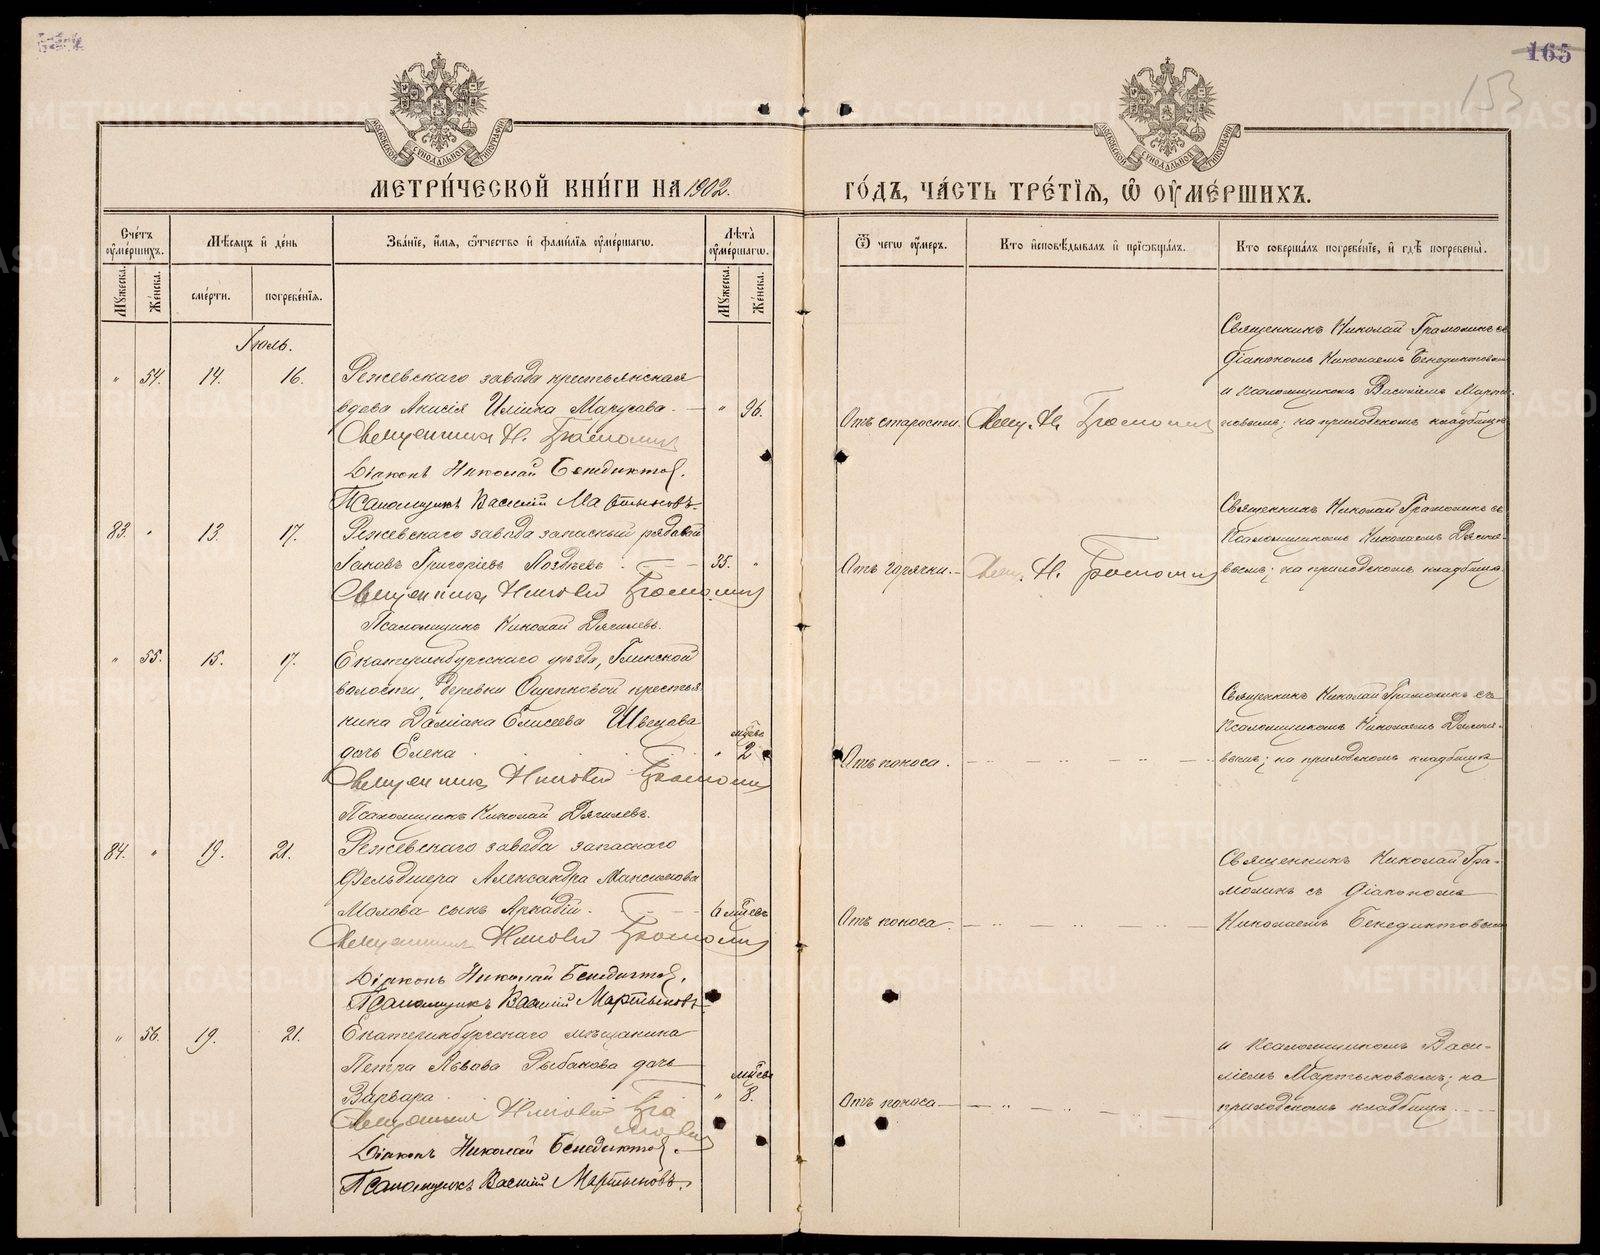 165
153
МОСКОВСКОЙ СѴНОДАЛЬНОЙ ТИПОГРАФИИ
МОСКОВСКОЙ СѴНОДАЛЬНОЙ ТИПОГРАФИИ
МЕТРИ́ЧЕСКОЙ КНИ́ГИ НА 1902.
ГО́ДЪ, ЧА́СТЬ ТРЕ́ТЇѦ, Ѿ ОУ҆МЕ́РШИХЪ.
Сче́тъ оу҆ме́ршихъ.
Мѣ́сѧцъ и҆ де́нь
Зва́нїе, и҆́мѧ, ѻ҆́тчество и҆ фами́лїѧ оу҆ме́ршагѡ.
Лѣ́та оу҆ме́ршагѡ.
Ѿ чегѡ̀ оу҆́меръ.
Кто̀ и҆сповѣ́дывалъ и҆ прїѡбща́лъ.
Кто̀ соверша́лъ погребе́нїе, и҆ гдѣ̀ погребены̀.
Мꙋ́жеска.
Же́нска.
сме́рти.
погребе́нїѧ.
Мꙋ́жеска.
Же́нска.
Іюль.
" 54. 14. 16.
Режевскаго завода крестьянская
вдова Анисія Ильина Манусова. — " 96.
Священникъ Н. Грамолин
Діаконъ Николай Бенедиктов.
Псаломщикъ Василій Мартыновъ.
Отъ старости.
Свящ. Н. Грамолин
Священникъ Николай Грамолинъ съ
діакономъ Николаемъ Бенедиктовым
и псаломщикомъ Василіемъ Марты-
новымъ; на приходскомъ кладбищѣ
83. " 13. 17.
Режевскаго завода запасный рядовой
Іаковъ Григоріевъ — 35. "
Священникъ Николай Грамолин
Псаломщикъ Николай Дягилевъ.
Отъ горячки. —
Свящ. Н. Грамолин
Священникъ Николай Грамолинъ съ
псаломщикомъ Николаемъ Дягиле-
вымъ; на приходскомъ кладбищѣ.
" 55. 15. 17.
Екатеринбургскаго уѣзда, Глинской
волости, деревни Ощепковой крестья-
нина Даміана Елисеева Швецова
дочь Елена " мѣсяц. 2
Священникъ Николай Грамолин
Псаломщикъ Николай Дягилевъ.
Отъ поноса.
Священникъ Николай Грамолинъ съ
псаломщикомъ Николаемъ Дягиле-
вымъ; на приходскомъ кладбищѣ
84. " 19. 21.
Режевскаго завода запаснаго
фельдшера Александра Максимова
сынъ Аркадій. — 6 мѣсяцевъ
Священникъ Николай Грамолин
Діаконъ Николай Бенедиктов.
Псаломщикъ Василій Мартыновъ
Отъ поноса.
Священникъ Николай Гра-
молинъ съ діакономъ
Николаемъ Бенедиктовымъ
" 56. 19. 21.
Екатеринбургскаго мѣщанина
Петра Львова Рыбакова дочь
Варвара " мѣсяц. 8.
Священникъ Николай Грамолин
Діаконъ Николай Бенедиктов.
Псаломщикъ Василій Мартыновъ.
Отъ поноса —
и псаломщикомъ Васи-
ліемъ Мартыновымъ; на
приходскомъ кладбищѣ
METRIKI.GASO-URAL.RU